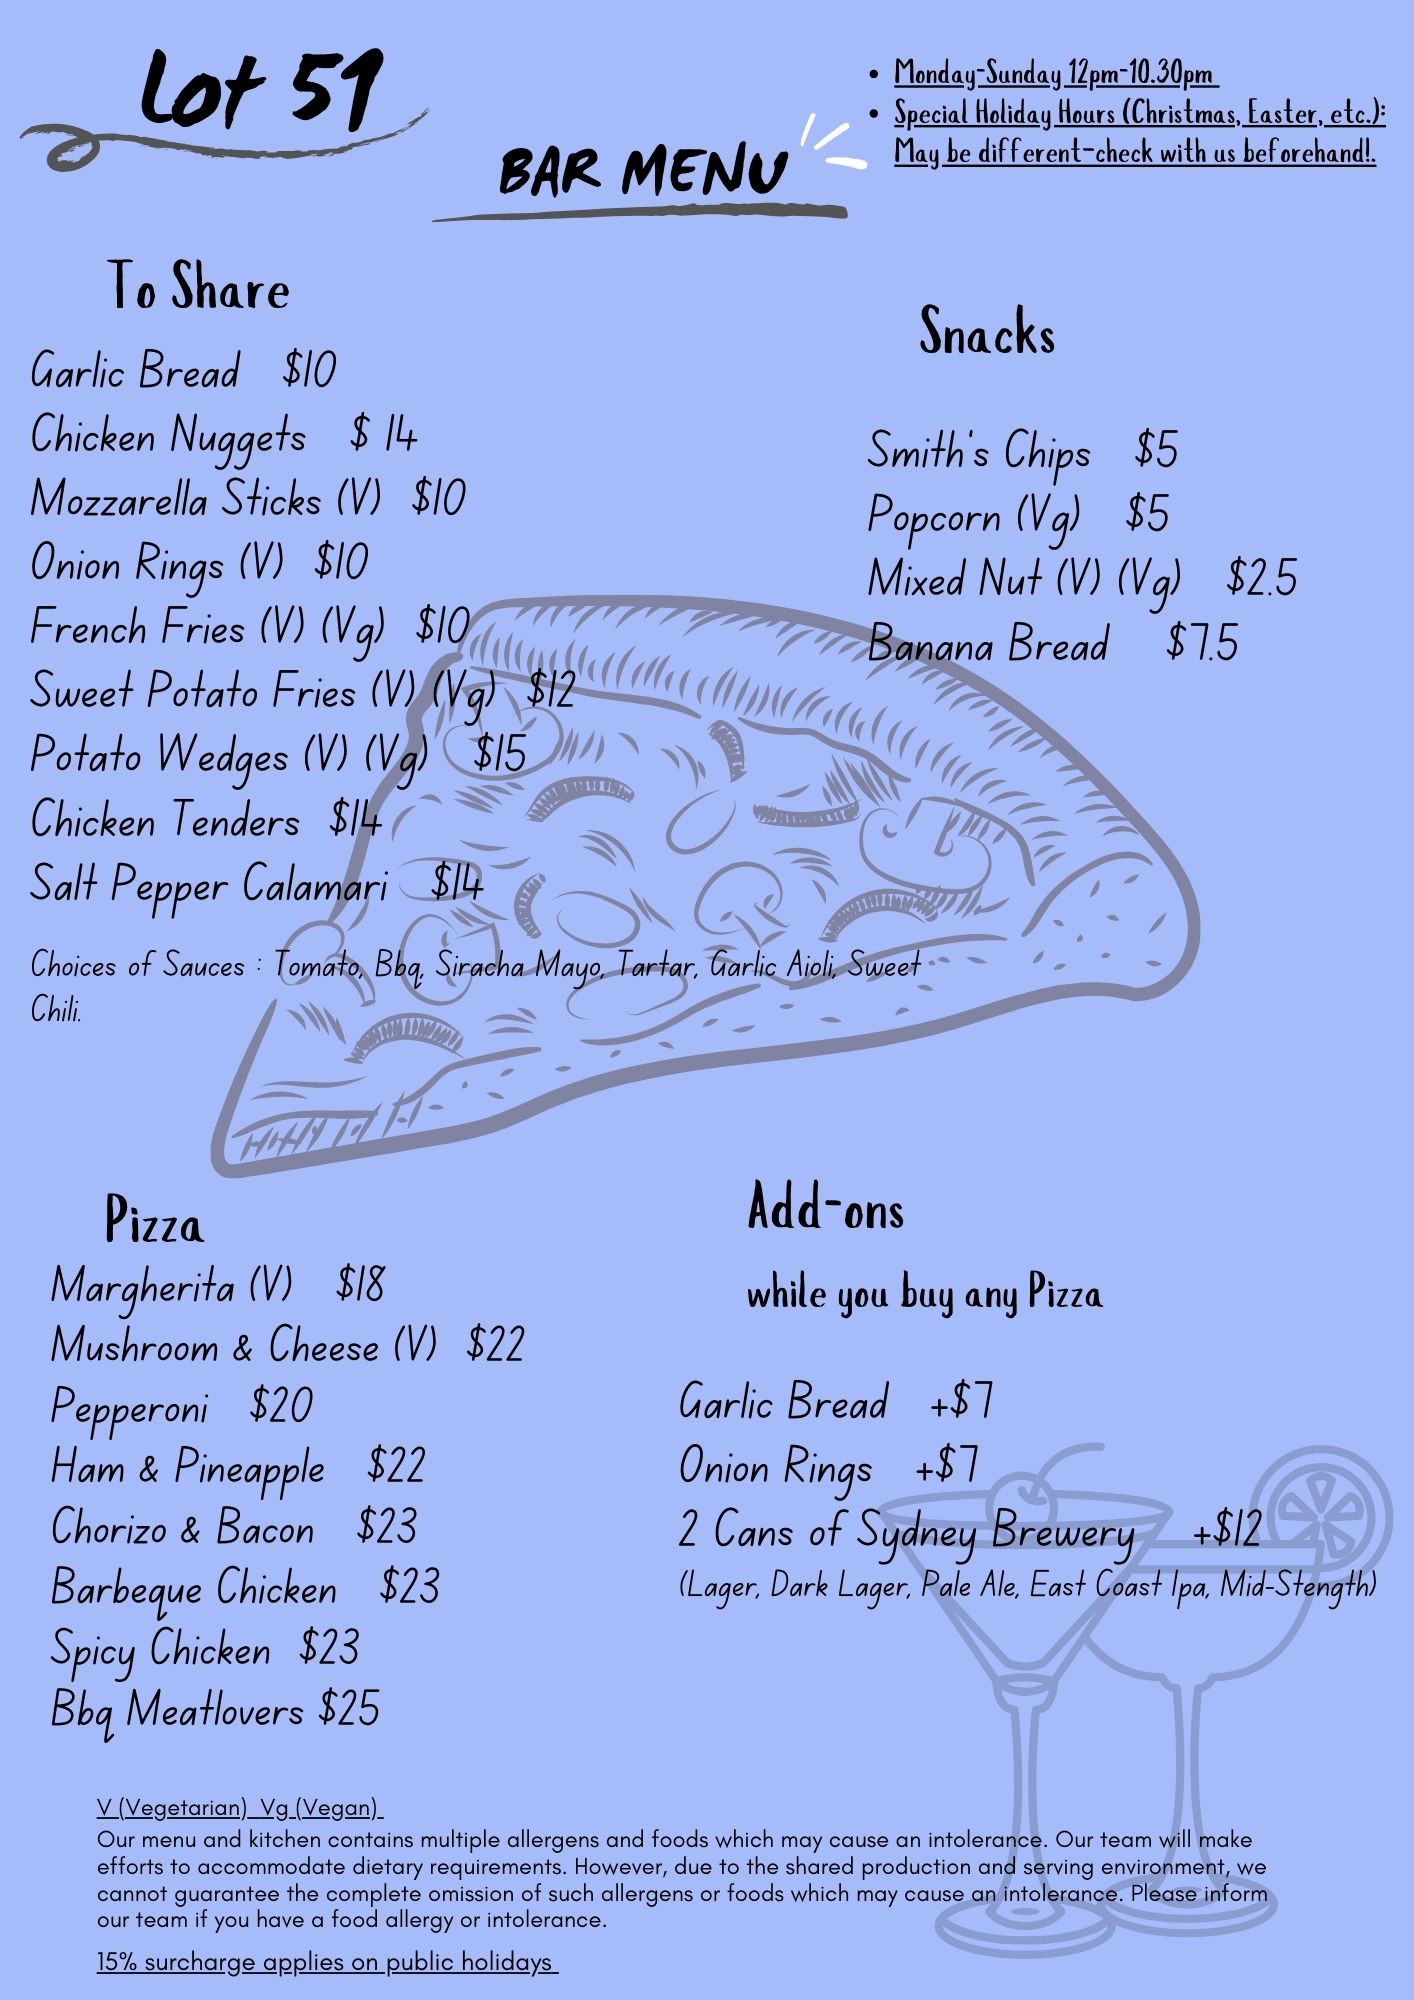 Lot 51
BAR MENU
• Monday-Sunday 12pm-10.30pm
• Special Holiday Hours (Christmas, Easter, etc.):
May be different-check with us beforehand!.
To Share
Garlic Bread $10
Chicken Nuggets $ 14
Mozzarella Sticks (V) $10
Onion Rings (V) $10
French Fries (V) (Vg) $10
Sweet Potato Fries (V) (Vg) $12
Potato Wedges (V) (Vg) $15
Chicken Tenders $14
Salt Pepper Calamari $14
Choices of Sauces : Tomato, Bbq, Siracha Mayo, Tartar, Garlic Aioli, Sweet
Chili.
Snacks
Smith's Chips $5
Popcorn (Vg) $5
Mixed Nut (V) (Vg) $2.5
Banana Bread $7.5
Pizza
Margherita (V) $18
Mushroom & Cheese (V) $22
Pepperoni $20
Ham & Pineapple $22
Chorizo & Bacon $23
Barbeque Chicken $23
Spicy Chicken $23
Bbq Meatlovers $25
Add-ons
while you buy any Pizza
Garlic Bread +$7
Onion Rings +$7
2 Cans of Sydney Brewery +$12
(Lager, Dark Lager, Pale Ale, East Coast Ipa, Mid-Stength)
V (Vegetarian) Vg (Vegan)
Our menu and kitchen contains multiple allergens and foods which may cause an intolerance. Our team will make
efforts to accommodate dietary requirements. However, due to the shared production and serving environment, we
cannot guarantee the complete omission of such allergens or foods which may cause an intolerance. Please inform
our team if you have a food allergy or intolerance.
15% surcharge applies on public holidays